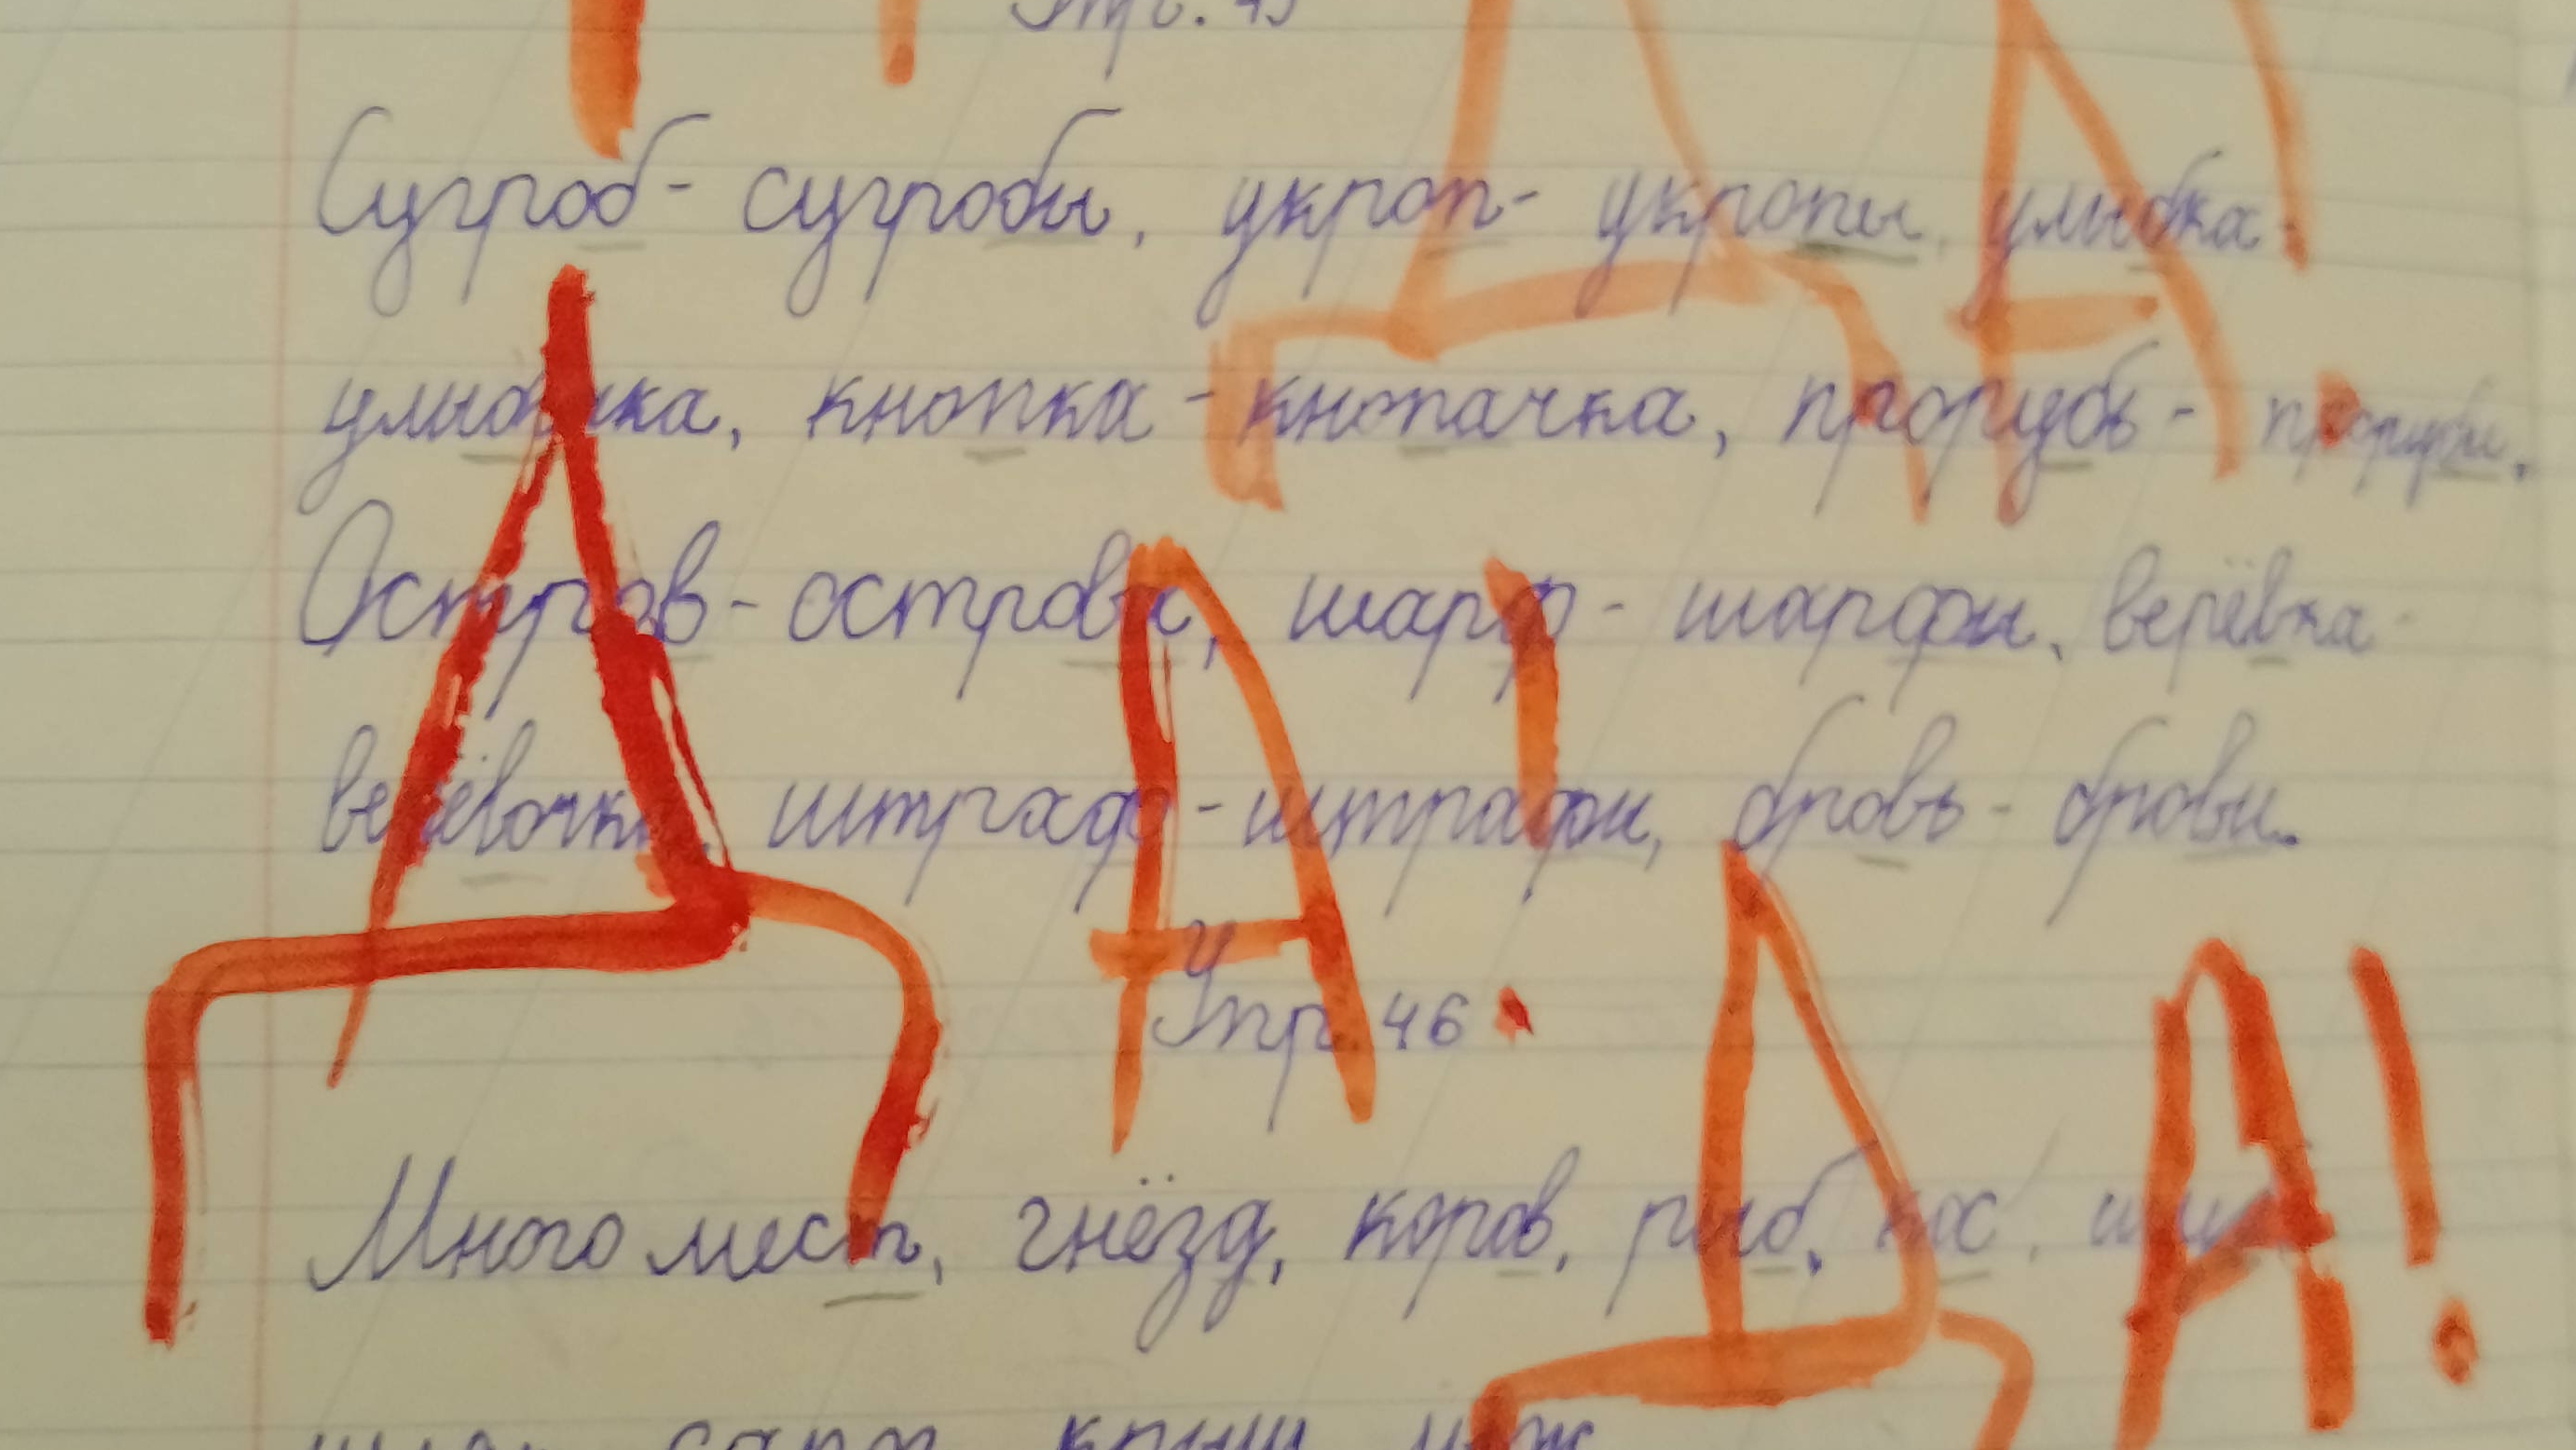 Упр. 45
Сугроб- сугробы, укроп- укропы, улыбка-
ДА!
улыбочка, кнопка - кнопачка, прорубь- проруби.
Остров- острова, шарф- шарфы, верёвка-
ДА!
верёвочка, штраф-штрафы, бровь- брови.
Упр. 46
ДА!
Много мест, гнёзд, коров, рыб, кос,
крыш